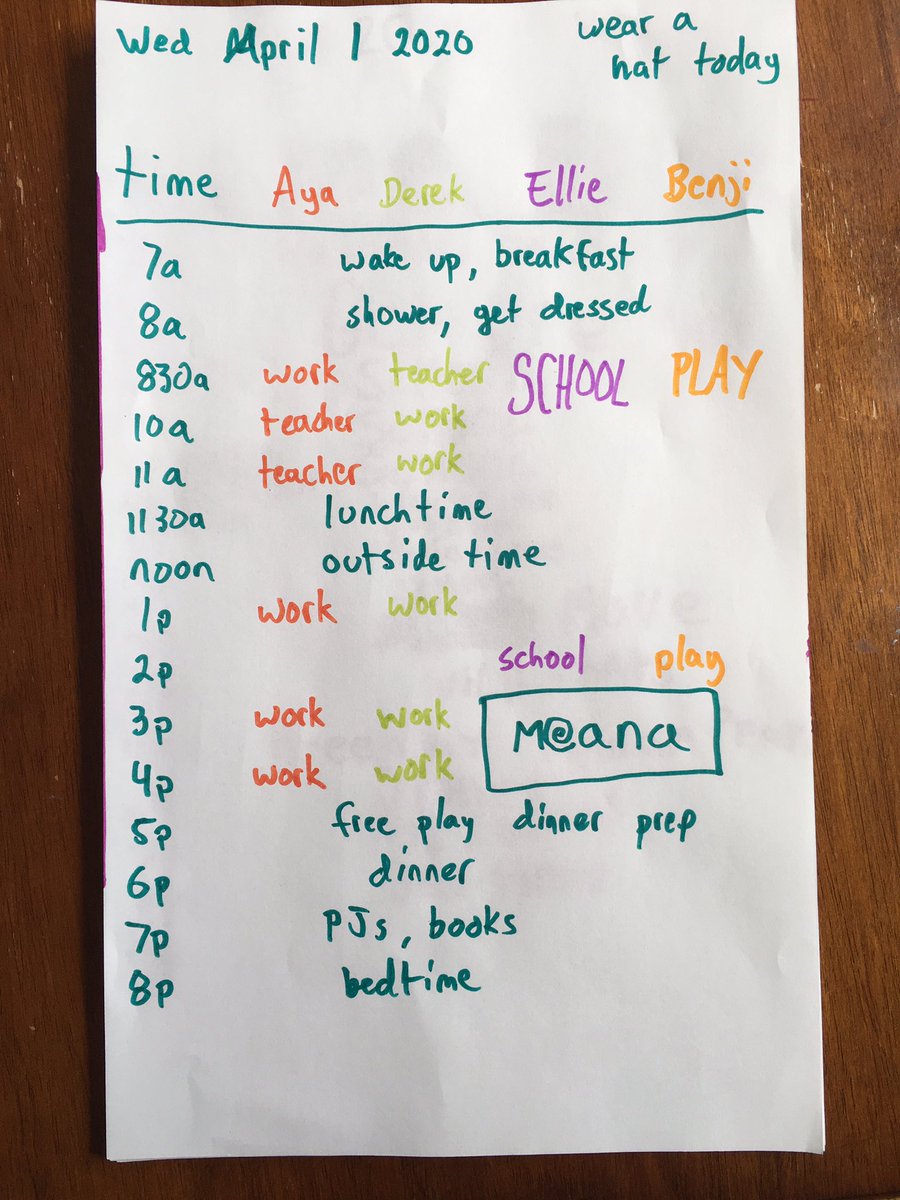 Wed April 1 2020 wear a
hat today
time Aya Derek Ellie Benji
7a wake up, breakfast
8a shower, get dressed
830a work teacher SCHOOL PLAY
10a teacher work
11a teacher work
1130a lunchtime
noon outside time
1p work work
2p school play
3p work work M@ana
4p work work
5p free play dinner prep
6p dinner
7p PJs, books
8p bedtime